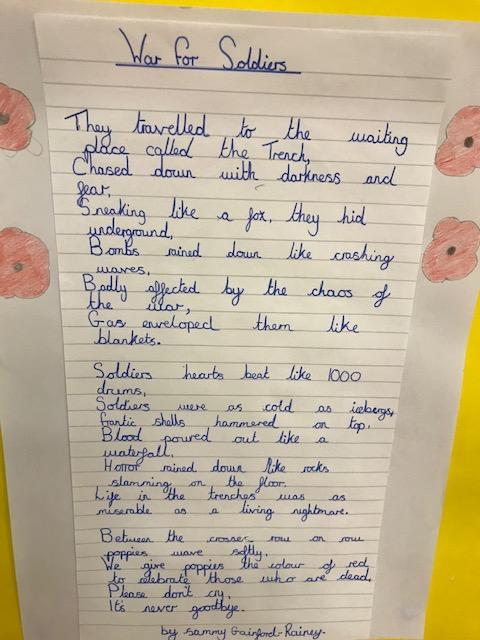 War for Soldiers
They travelled to the waiting
place called the Trench,
Chased down with darkness and
fear,
Sneaking like a fox, they hid
underground,
Bombs rained down like crashing
waves,
Badly affected by the chaos of
the war,
Gas enveloped them like
blankets.
Soldiers hearts beat like 1000
drums,
Soldiers were as cold as icebergs,
frantic shells hammered on top,
Blood poured out like a
waterfall,
Horror rained down like rocks
slamming on the floor.
Life in the trenches was as
miserable as a living nightmare.
Between the crosses row on row
poppies wave softly,
We give poppies the colour of red
to celebrate those who are dead,
Please don't cry,
It's never goodbye.
by Sammy Gainford-Rainey.